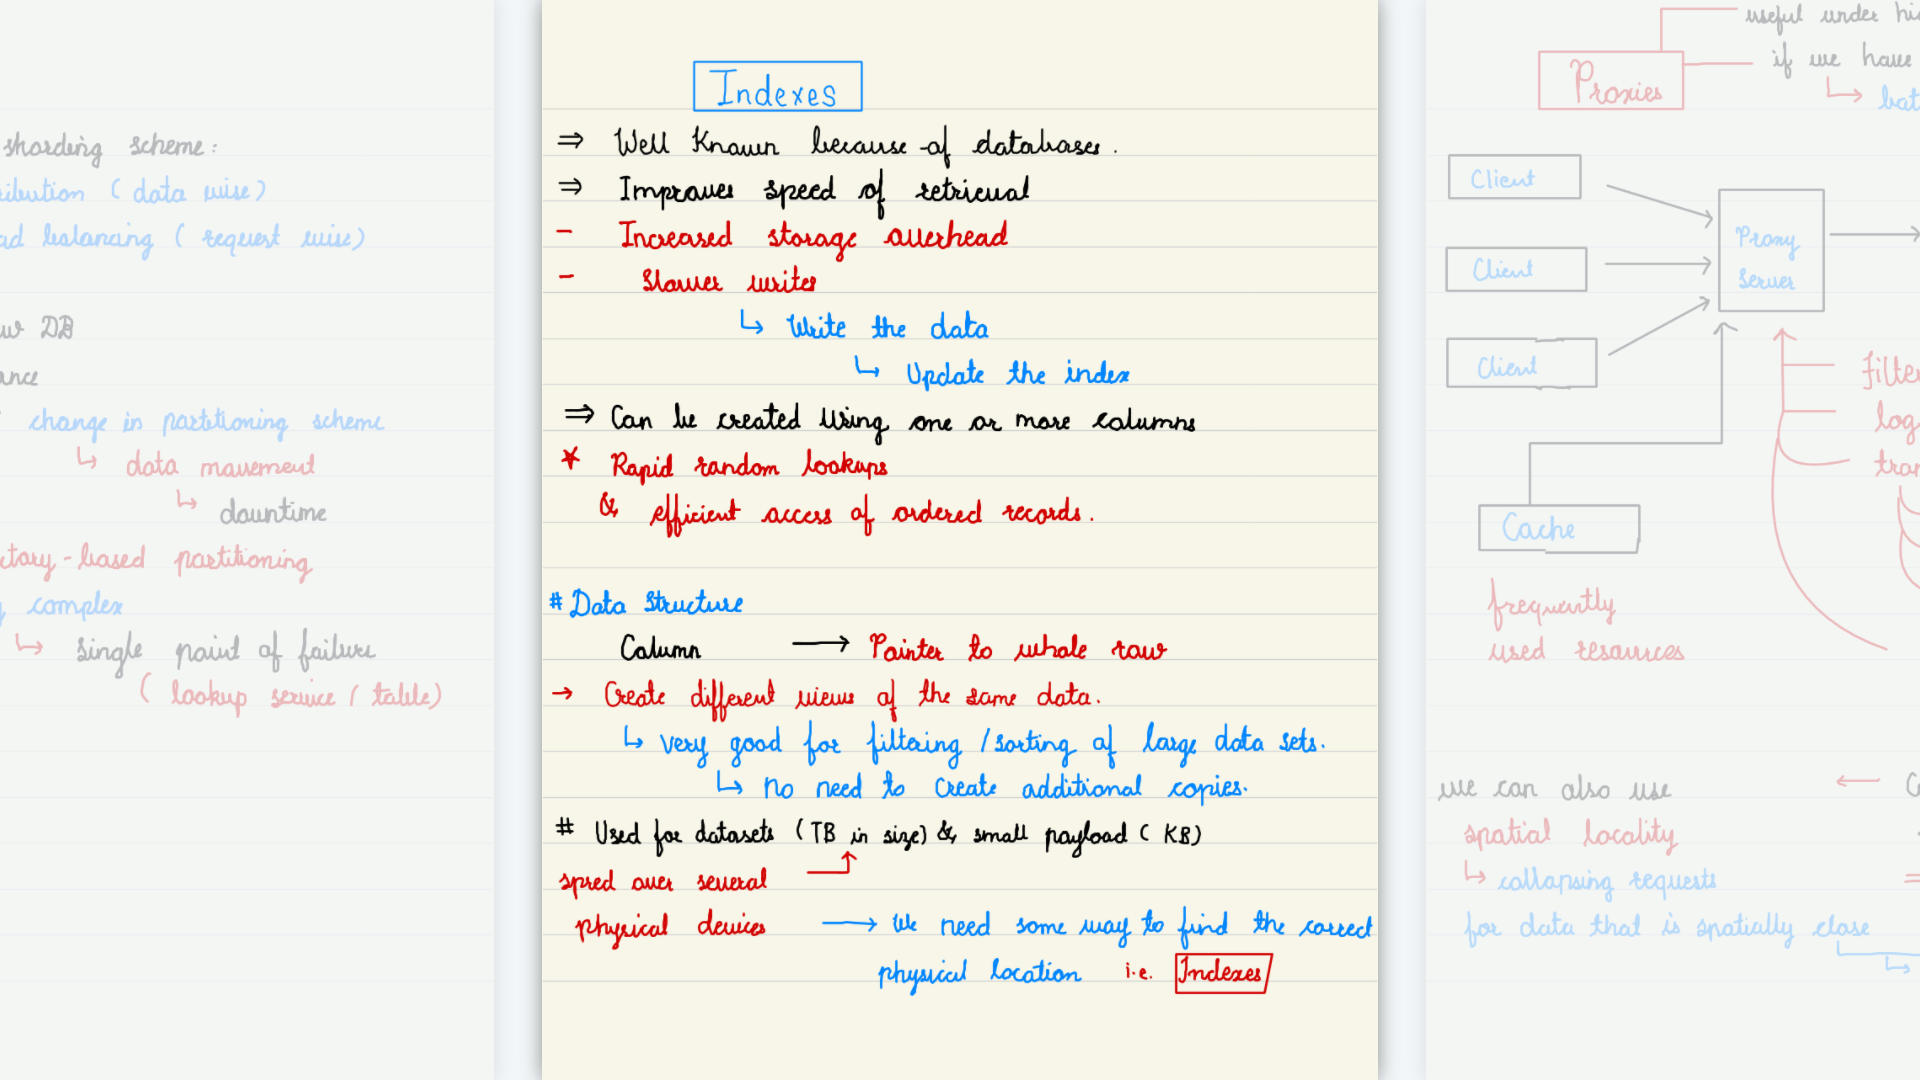 sharding scheme:
(data wise)
balancing (request wise)
DB
change in partitioning scheme
↳ data movement
↳ downtime
-based partitioning
complex
↳ single point of failure
(lookup service / table)
Indexes
⇒ Well Known because of databases.
⇒ Improves speed of retrieval
- Increased storage overhead
- Slower writes
↳ Write the data
↳ Update the index
⇒ Can be created Using one or more columns
* Rapid random lookups
& efficient access of ordered records.
# Data Structure
Column → Pointer to whole row
→ Create different views of the same data.
↳ very good for filtering / sorting of large data sets.
↳ no need to create additional copies.
# Used for datasets (TB in size) & small payload (KB)
spred over several
physical devices → We need some way to find the correct
physical location i.e. Indexes
useful under
if we have
Proxies
Client
Client
Client
Proxy
Server
Cache
frequently
used resources
we can also use
spatial locality
↳ collapsing requests
for data that is spatially close